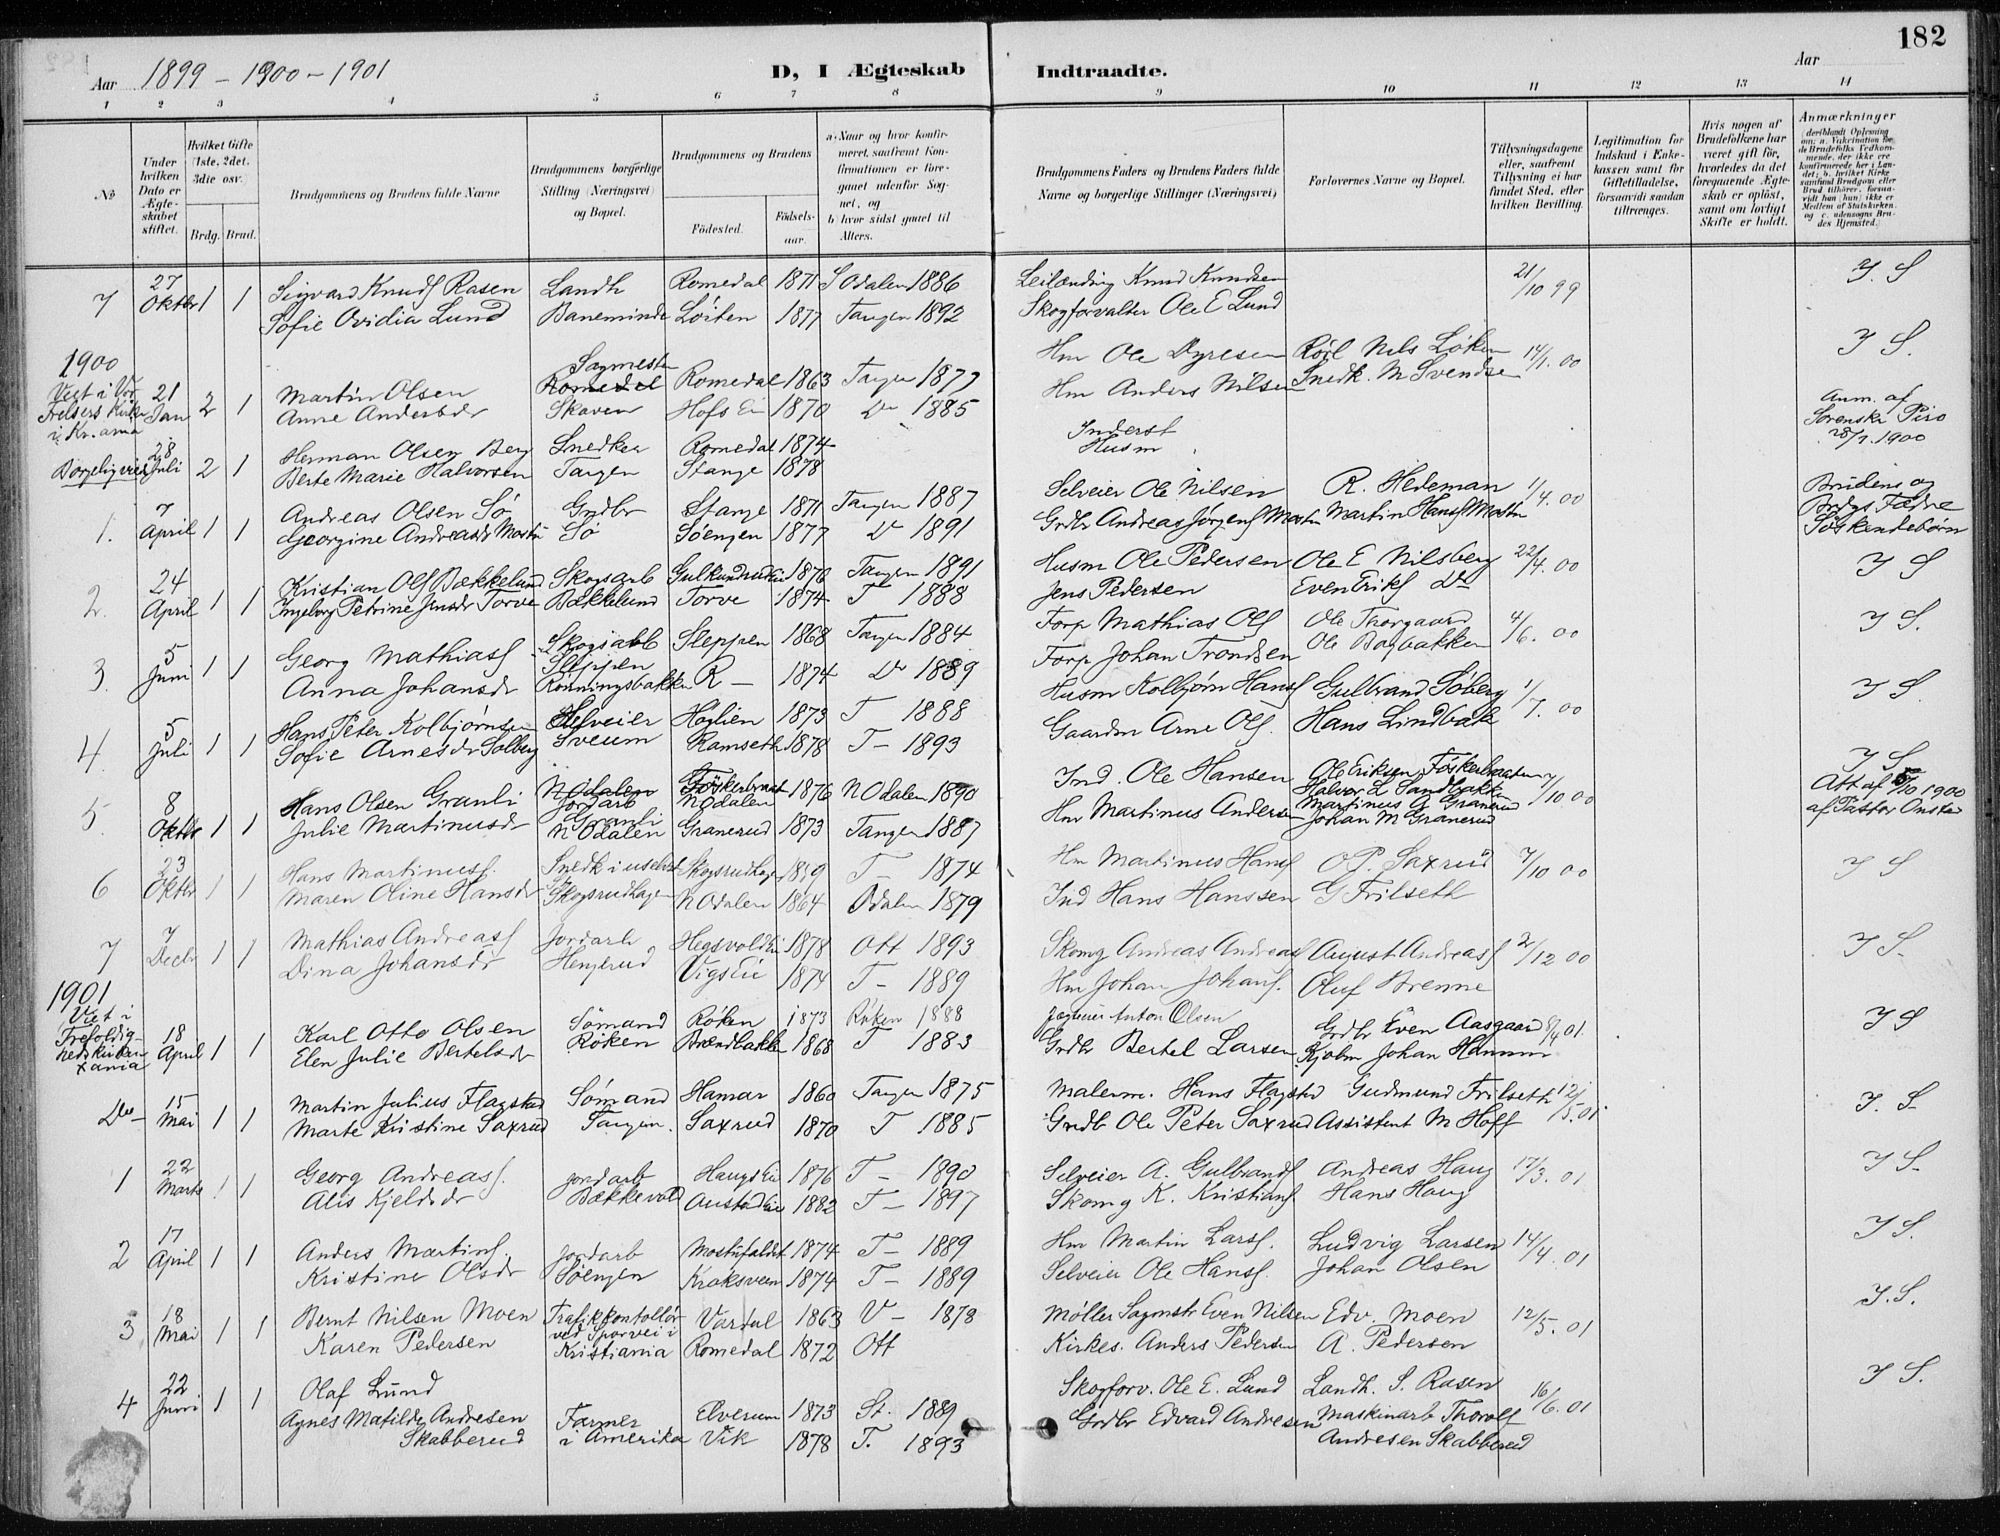 182
Aar 1899 - 1900 - 1901 D, I Ægteskab Indtraadte. Aar
1 2 3 4 5 6 7 8 9 10 11 12 13 14
No
Under hvilken Dato er Ægte-skabet stiftet.
Hvilket Gifte (1ste, 2det, 3die osv.)
Brdg. Brud.
Brudgommens og Brudens fulde Navne
Brudgommens borgerlige Stilling (Næringsvei) og Bopæl.
Brudgommens og Brudens
Fødested. Fødsels-aar.
a. Naar og hvor konfir-meret, saafremt Kon-firmationen er fore-gaaet udenfor Sog-net, og
b. hvor sidst gaaet til Alters.
Brudgommens Faders og Brudens Faders fulde Navne og borgerlige Stillinger (Næringsvei)
Forlovernes Navne og Bopæl.
Tillysningsdagene eller, saafremt Tillysning ei har fundet Sted, efter hvilken Bevilling.
Legitimation for Indskud i Enke-kassen samt for Giftetilladelse, forsaavidt saadan tiltrænges.
Hvis nogen af Brudefolkene har været gift før, hvorledes da det foregaaende Ægte-skab er opløst, samt om lovligt Skifte er holdt.
Anmærkninger
7 27 Oktbr 1 1 Sigvard Knuds Rasen Landh Romedal 1871 S Odalen 1886 Leilænding Knud Knudsen 21/10 99 I S
Sofie Ovidia Lund Baneminde Løiten 1877 Tangen 1892 Skogforvalter Ole E Lund
1900
Viet i Vor Frelsers Kirke i Kr.ania 21 Jan 2 1 Martin Olsen Sagmester Romedal Romedal 1863 Tangen 1877 Hm Ole Dyresen Rørl Nils Løken 14/1. 00 I S.
Anne Andersdr Skaven Hofs Ei 1870 Do 1885 Hm Anders Nilsen Snedk. M Svendsen
Borgerlig viede 28 Juli 2 1 Herman Olsen Berg Snedker Romedal 1874 Inderst Anm. af Sorenskr Piro 28/7. 1900
Berte Marie Halvorsen Tangen Stange 1878 Husm
1. 7 April 1 1 Andreas Olsen Sø Grdbr Stange 1871 Tangen 1887 Selveier Ole Nilsen R. Hedeman 1/4. 00 Brudens og Brdgs Fædre Søskendebørn
Georgine Andreasdr Sø Søengen 1877 Do 1891 Grdbr Andreas Jørgens Martin Hans
2. 24 April 1 1 Kristian Ols Bækkelund Skogsarb 1876 Tangen 1891 Husm Ole Pedersen Ole E Nilsberg 22/4. 00 I S
Ingeborg Petrine Jensdr Torve Bækkelund Torve 1874 T 1888 Jens Pedersen Even Eriks Do
3. 5 Juni 1 1 Georg Mathias Skogsarb Sleppen Sleppen 1868 Tangen 1884 Forp Mathias Ols Ole Thorgaard 4/6. 00 I S.
Anna Johansdr Rønningsbakken R - 1874 Do 1889 Forp Johan Trondsen Ole Bagbakken
4. 5 Juli 1 1 Hans Peter Kolbjørnsen Selveier Høglien 1873 T 1888 Husm Kolbjørn Hans Gulbrand Søberg 1/7. 00 I S.
Sofie Arnesdr Solberg Sveum Ramseth 1878 T - 1893 Gaardm Arne Ols. Hans Lindbak
5. 8 Oktbr 1 1 Hans Olsen Granli N Odalen Jordarb N Odalen 1876 N Odalen 1890 Ind. Ole Hansen Ole Eriksen Halvor L Sandbakken 7/10 00 I S Att af 5/10 1900 af Pastor
Julie Martinusdr Granli N Odalen Granerud 1873 Tangen 1887 Hm Martinus Andersen Martinus G Granerud Johan M Granerud
6 23 Oktbr 1 1 Hans Martinus. Snedk i Skogsrudhagen 1859 T - 1874 Hm Martinus Hans O P. Saxrud 7/10 00 I S
Maren Oline Hansdr Skogsrudhagen N Odalen 1864 Odalen 1879 Ind Hans Hanssen G Frilseth
7 7 Decbr 1 1 Mathias Andreas Jordarb Hegsvold Ei 1878 Ott 1893 Skomg Andreas Andreas August Andreas 2/12 00 I S.
Dina Johansdr Hengerud Vigs Ei 1874 T - 1889 Hm Johan Johans. Oluf Brenne
1901
Viet i Trefoldig-hedskirken Xania 18 April 1 1 Karl Otto Olsen Sømand Røken 1873 Røken 1888 Anton Olsen Grdbr Even Aasgaard 8/4 01. I S
Elen Julie Bertelsdr Røken Brændbakken 1868 T 1883 Grdbr Bertel Larsen Kjøbm Johan Hammer
Do - 15 Mai 1 1 Martin Julius Flagstad Sømand Hamar 1860 Tangen 1875 Malerm. Hans Flagstad Gudmund Frilseth 12/5. 01 I. S.
Marte Kristine Saxrud Tangen. Saxrud 1870 T 1885 Grdb Ole Peter Saxrud Assistent M Hoff
1 22 Marts 1 1 Georg Andreas. Jordarb Haugs Ei 1876 T - 1890 Selveier A. Gulbrands Andreas Haug 17/3. 01 I S.
Alis Kjeldsdr Bækkevold Austad Ei 1882 T - 1897 Skomg K. Kristians Hans Haug
2 17 April 1 1 Anders Martins. Jordarb 1874 T - 1889 Hm Martin Lars. Ludvig Larsen 14/4. 01 I S.
Kristine Olsdr Søengen Kraksveen 1874 T - 1889 Selveier Ole Hans. Johan Olsen
3 18 Mai 1 1 Bernt Nilsen Moen Trafikkontollør ved Sporvei i Vardal 1863 V - 1878 Møller Sagmstr Even Nilsen Edv. Moen 12/5. 01 I. S.
Karen Pedersen Kristiania Romedal 1872 Ott Kirkes. Anders Pedersen A. Pedersen
4 22 Juni 1 1 Olaf Lund Farmer Elverum 1873 St. 1889 Skogforv. Ole E. Lund Landh. S. Rasen 16/6. 01 I S.
Agnes Matilde Andresen Skabberud i Amerika Vik 1878 T. 1893 Grdbr Edvard Andresen Maskinarb Thorolf Andresen Skabberud